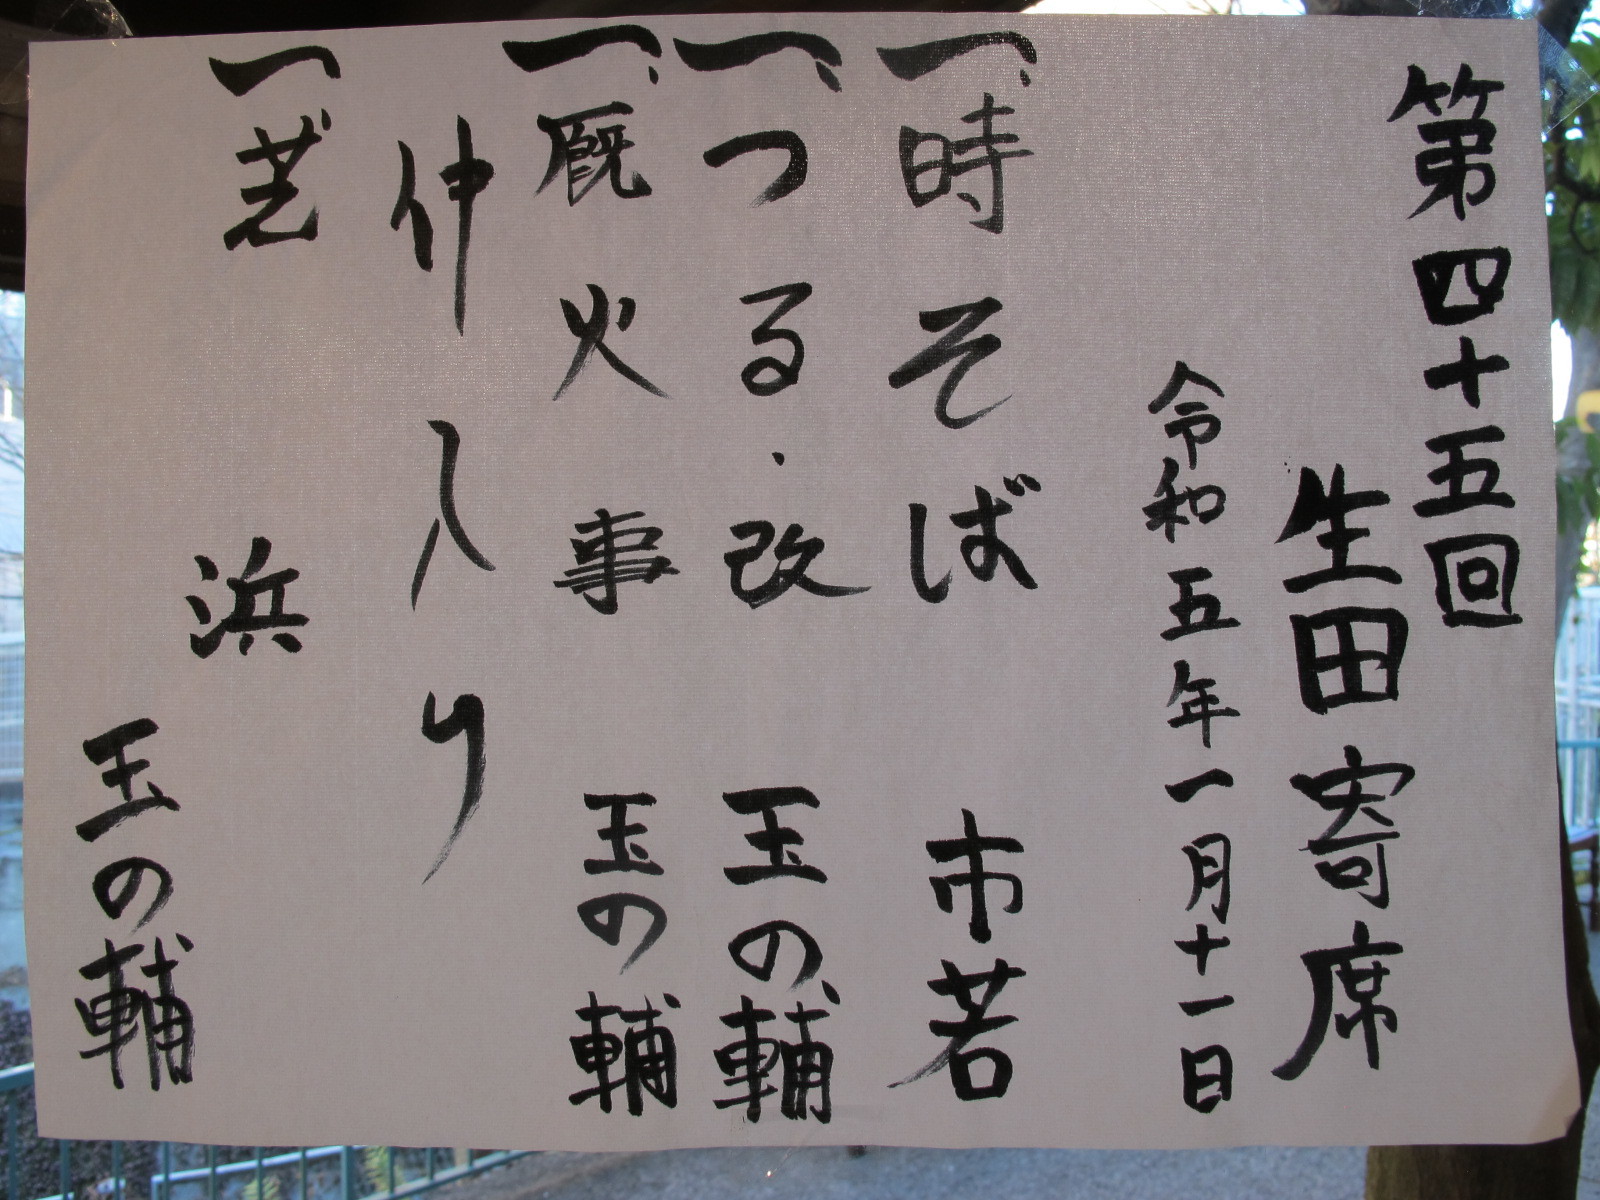 第四十五回
生田寄席
令和五年一月十一日
一、時そば 市若
一、つる・改 玉の輔
一、厩火事 玉の輔
仲入り
一、芝浜 玉の輔